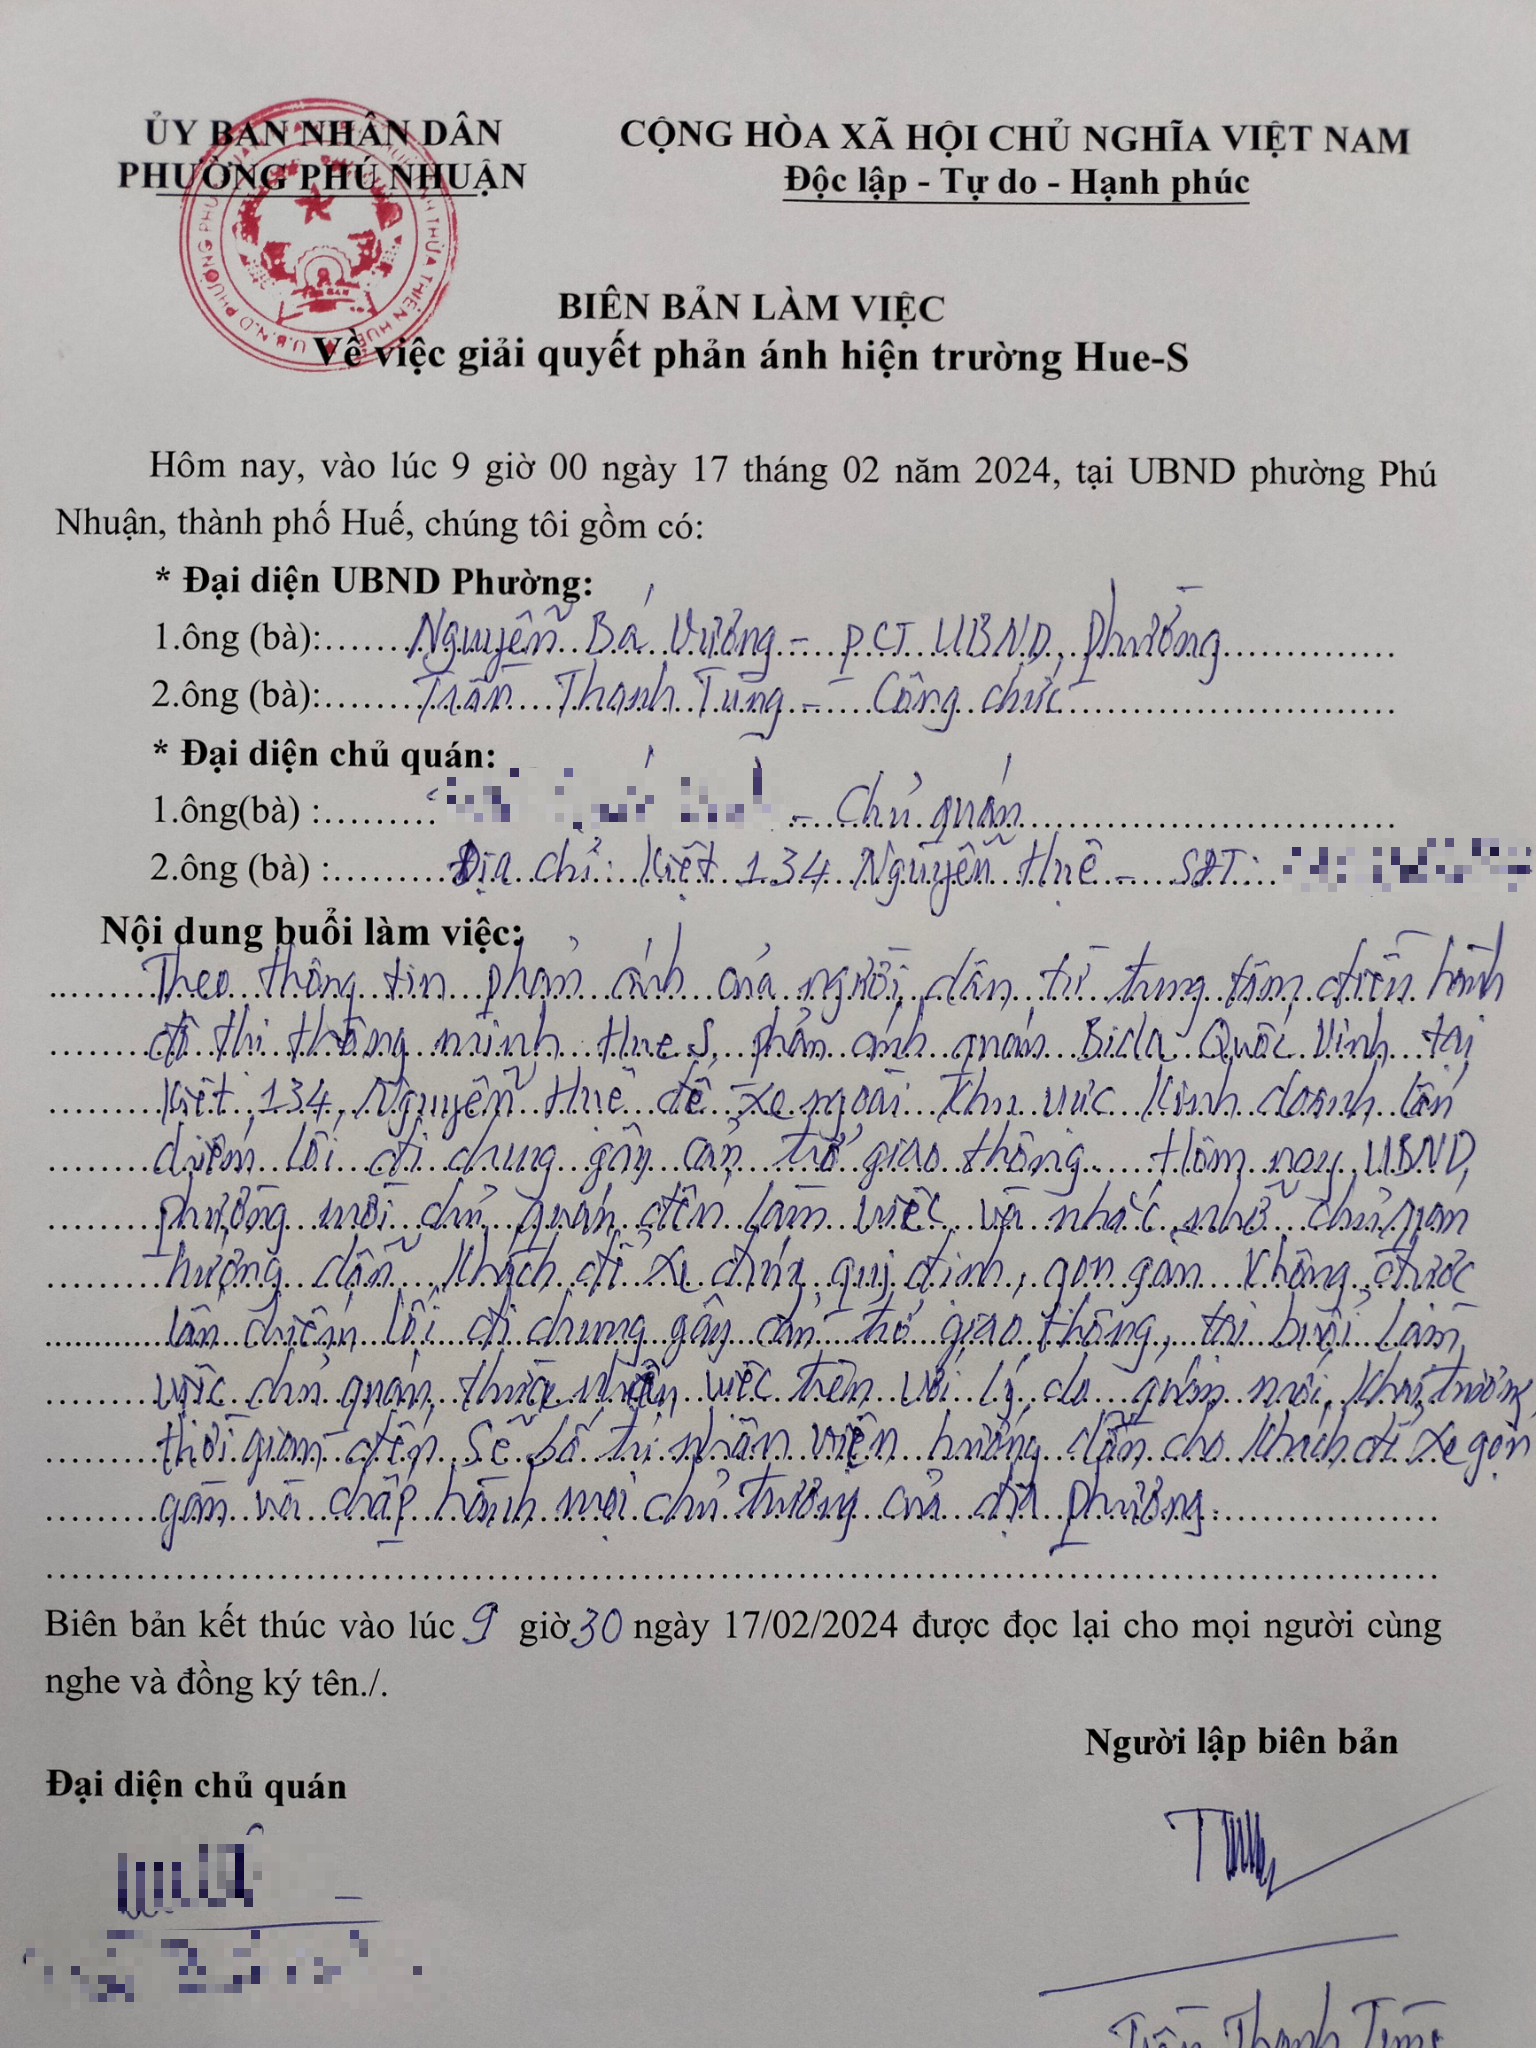 ỦY BAN NHÂN DÂN
PHƯỜNG PHÚ NHUẬN
CỘNG HÒA XÃ HỘI CHỦ NGHĨA VIỆT NAM
Độc lập - Tự do - Hạnh phúc
BIÊN BẢN LÀM VIỆC
Về việc giải quyết phản ánh hiện trường Hue-S
Hôm nay, vào lúc 9 giờ 00 ngày 17 tháng 02 năm 2024, tại UBND phường Phú
Nhuận, thành phố Huế, chúng tôi gồm có:
* Đại diện UBND Phường:
1.ông (bà):.......Nguyễn Bá Vương - PCT UBND, phường
2.ông (bà):.......Trần Thanh Tùng - Công chức
* Đại diện chủ quán:
1.ông(bà) :......... - Chủ quán
2.ông (bà) :.........Địa chỉ: Kiệt 134 Nguyễn Huệ - SĐT:
Nội dung buổi làm việc:
Theo thông tin phản ánh của người dân từ trung tâm điều hành
đô thị thông minh Hue S, phản ánh quán Bida Quốc Vinh tại
Kiệt 134 Nguyễn Huệ để xe ngoài khu vực kinh doanh lấn
chiếm lối đi chung gây cản trở giao thông. Hôm nay UBND
phường mời chủ quán đến làm việc và nhắc nhở chủ quán
hướng dẫn khách để xe đúng quy định, gọn gàn không được
lấn chiếm lối đi chung gây cản trở giao thông, tại buổi làm
việc chủ quán thừa nhận việc trên với lý do quán mới khai trương
thời gian đến sẽ bố trí nhân viên hướng dẫn cho khách để xe gọn
gàn và chấp hành mọi chủ trương của địa phương.
Biên bản kết thúc vào lúc 9 giờ 30 ngày 17/02/2024 được đọc lại cho mọi người cùng
nghe và đồng ký tên./.
Người lập biên bản
Đại diện chủ quán
Trần Thanh Tùng